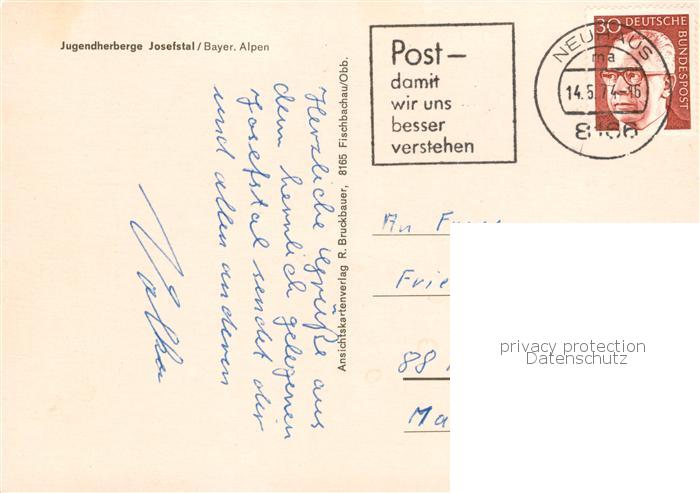 Jugendherberge Josefstal / Bayer. Alpen
Post –
damit
wir uns
besser
verstehen
NEUHAUS
ma
14.5.74-16
8166
30 DEUTSCHE
BUNDESPOST
Herzliche Grüße aus
dem herrlich gelegenen
Josefstal sendet dir
und allen anderen
Volker
Ansichtskartenverlag R. Bruckbauer, 8165 Fischbachau/Obb.
An
Frie
88
Ma
privacy protection
Datenschutz